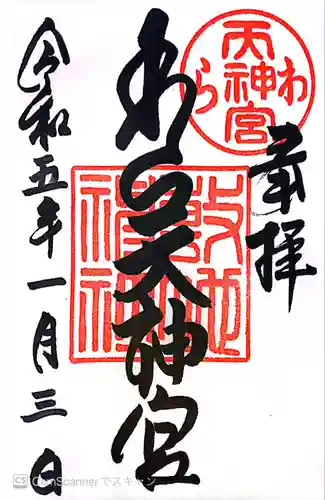 奉拝
わら天神宮
わら天神宮
敷地神社
令和五年一月三日
CS CamScannerでスキャン